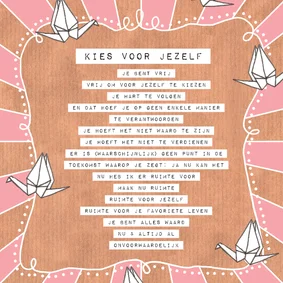 KIES VOOR JEZELF
JE BENT VRIJ
VRIJ OM VOOR JEZELF TE KIEZEN
JE HART TE VOLGEN
EN DAT HOEF JE OP GEEN ENKELE MANIER
TE VERANTWOORDEN
JE HOEFT HET NIET WAARD TE ZIJN
JE HOEFT HET NIET TE VERDIENEN
ER IS (WAARSCHIJNLIJK) GEEN PUNT IN DE
TOEKOMST WAAROP JE ZEGT: JA NU KAN HET
NU HEB IK ER RUIMTE VOOR
MAAK NU RUIMTE
RUIMTE VOOR JEZELF
RUIMTE VOOR JE FAVORIETE LEVEN
JE BENT ALLES WAARD
NU & ALTIJD AL
ONVOORWAARDELIJK